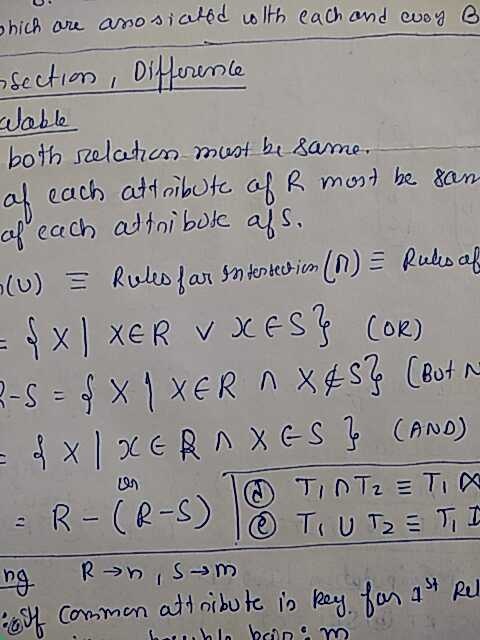 which are assosiated with each and evey B
nsection, Difference
alable
both relation must be same.
of each attribute of R must be sam
of each attribute of S.
(U) ≡ Rules for Intersection (∩) ≡ Rules of
= { X | X∈R ∨ X∈S } (OR)
R-S = { X | X∈R ∧ X∉S } (But N
= { X | X∈R ∧ X∈S } (AND)
= R - (R-S)
ⓓ T₁ ∩ T₂ ≡ T₁ ⋈
ⓔ T₁ ∪ T₂ ≡ T₁
ng R → n, S → m
If common attribute is key for 1st Rel